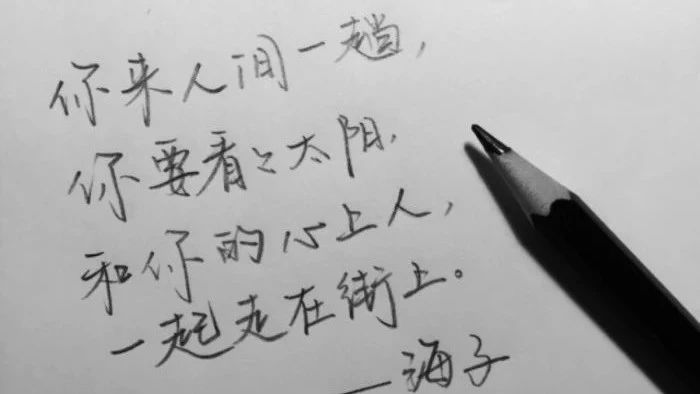 你来人间一趟,
你要看々太阳,
和你的心上人,
一起走在街上。
—海子